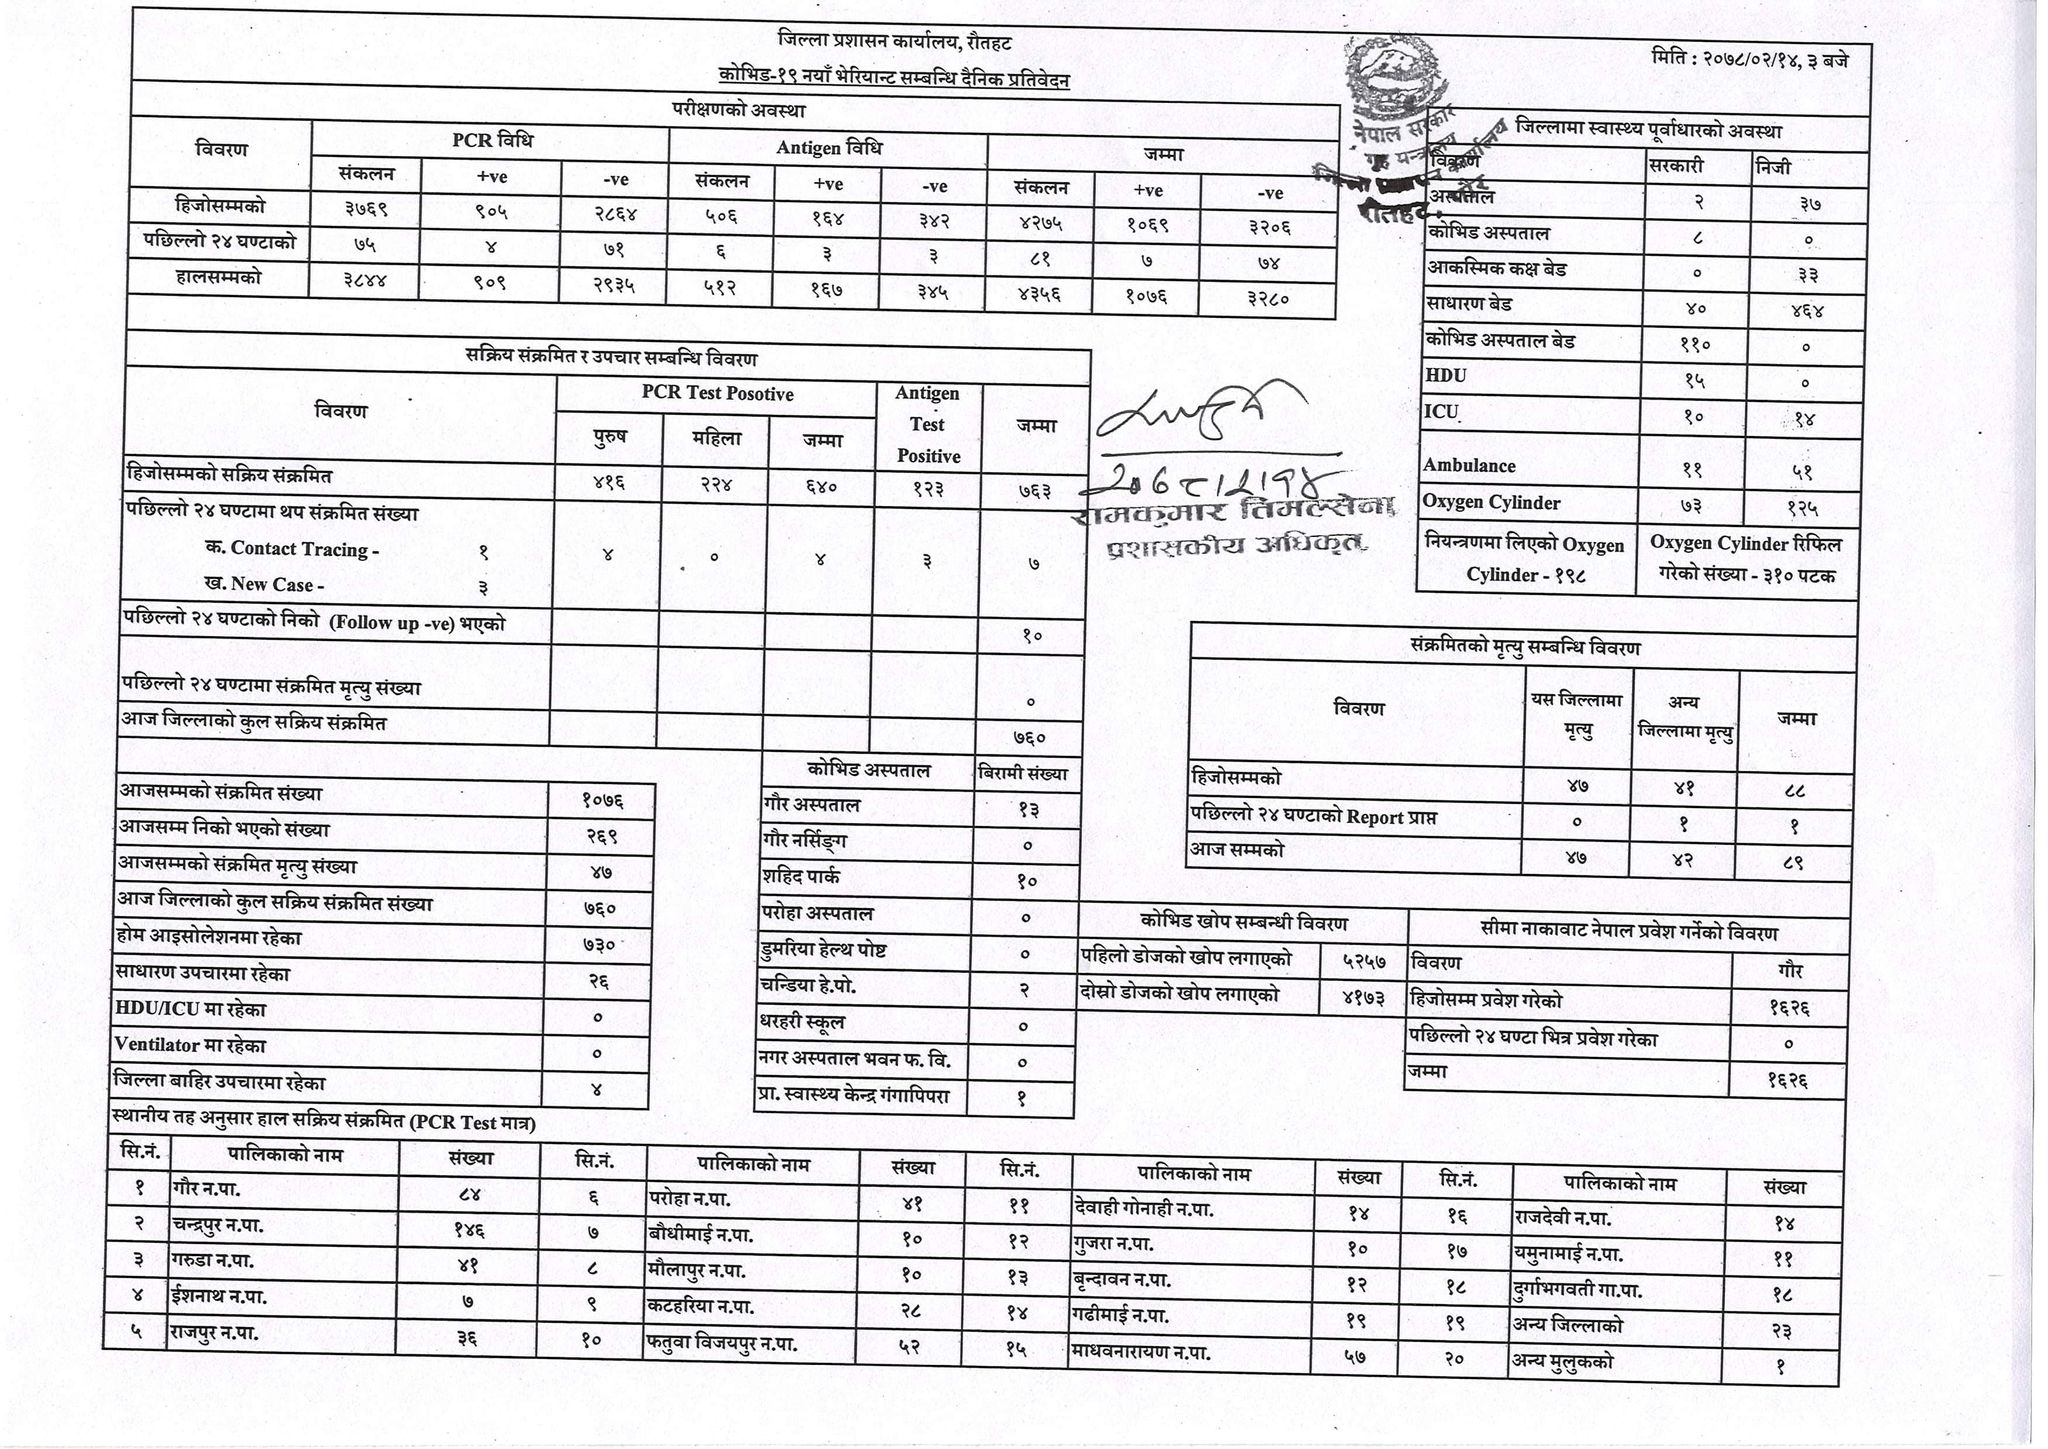 जिल्ला प्रशासन कार्यालय, रौतहट
कोभिड-१९ नयाँ भेरियान्ट सम्बन्धि दैनिक प्रतिवेदन
मिति : २०७८/०२/१४, ३ बजे
नेपाल सरकार
गृह मन्त्रालय
जिल्ला प्रशासन कार्यालय
रौतहट, गौर
परीक्षणको अवस्था
विवरण PCR विधि Antigen विधि जम्मा
संकलन +ve -ve संकलन +ve -ve संकलन +ve -ve
हिजोसम्मको ३७६९ ९०५ २८६४ ५०६ १६४ ३४२ ४२७५ १०६९ ३२०६
पछिल्लो २४ घण्टाको ७५ ४ ७१ ६ ३ ३ ८१ ७ ७४
हालसम्मको ३८४४ ९०९ २९३५ ५१२ १६७ ३४५ ४३५६ १०७६ ३२८०
जिल्लामा स्वास्थ्य पूर्वाधारको अवस्था
विवरण सरकारी निजी
अस्पताल २ ३७
कोभिड अस्पताल ८ ०
आकस्मिक कक्ष बेड ० ३३
साधारण बेड ४० ४६४
कोभिड अस्पताल बेड ११० ०
HDU १५ ०
ICU १० १४
Ambulance ११ ५१
Oxygen Cylinder ७३ १२५
नियन्त्रणमा लिएको Oxygen Cylinder रिफिल
Oxygen Cylinder - १९८ गरेको संख्या - ३१० पटक
सक्रिय संक्रमित र उपचार सम्बन्धि विवरण
विवरण PCR Test Posotive Antigen Test Positive जम्मा
पुरुष महिला जम्मा
हिजोसम्मको सक्रिय संक्रमित ४१६ २२४ ६४० १२३ ७६३
पछिल्लो २४ घण्टामा थप संक्रमित संख्या
क. Contact Tracing - १ ४ ० ४ ३ ७
ख. New Case - ३
पछिल्लो २४ घण्टाको निको (Follow up -ve) भएको १०
पछिल्लो २४ घण्टामा संक्रमित मृत्यु संख्या ०
आज जिल्लाको कुल सक्रिय संक्रमित ७६०
२०७८।२।१४
रामकुमार तिमल्सेना
प्रशासकीय अधिकृत
संक्रमितको मृत्यु सम्बन्धि विवरण
विवरण यस जिल्लामा मृत्यु अन्य जिल्लामा मृत्यु जम्मा
हिजोसम्मको ४७ ४१ ८८
पछिल्लो २४ घण्टाको Report प्राप्त ० १ १
आज सम्मको ४७ ४२ ८९
आजसम्मको संक्रमित संख्या १०७६
आजसम्म निको भएको संख्या २६९
आजसम्मको संक्रमित मृत्यु संख्या ४७
आज जिल्लाको कुल सक्रिय संक्रमित संख्या ७६०
होम आइसोलेशनमा रहेका ७३०
साधारण उपचारमा रहेका २६
HDU/ICU मा रहेका ०
Ventilator मा रहेका ०
जिल्ला बाहिर उपचारमा रहेका ४
कोभिड अस्पताल बिरामी संख्या
गौर अस्पताल १३
गौर नर्सिङ्ग ०
शहिद पार्क १०
परोहा अस्पताल ०
डुमरिया हेल्थ पोष्ट ०
चन्डिया हे.पो. २
धरहरी स्कूल ०
नगर अस्पताल भवन फ. वि. ०
प्रा. स्वास्थ्य केन्द्र गंगापिपरा १
कोभिड खोप सम्बन्धी विवरण
पहिलो डोजको खोप लगाएको ५२५७
दोस्रो डोजको खोप लगाएको ४१७३
सीमा नाकावाट नेपाल प्रवेश गर्नेको विवरण
विवरण गौर
हिजोसम्म प्रवेश गरेको १६२६
पछिल्लो २४ घण्टा भित्र प्रवेश गरेका ०
जम्मा १६२६
स्थानीय तह अनुसार हाल सक्रिय संक्रमित (PCR Test मात्र)
सि.नं. पालिकाको नाम संख्या सि.नं. पालिकाको नाम संख्या सि.नं. पालिकाको नाम संख्या सि.नं. पालिकाको नाम संख्या
१ गौर न.पा. ८४ ६ परोहा न.पा. ४१ ११ देवाही गोनाही न.पा. १४ १६ राजदेवी न.पा. १४
२ चन्द्रपुर न.पा. १४६ ७ बौधीमाई न.पा. १० १२ गुजरा न.पा. १० १७ यमुनामाई न.पा. ११
३ गरुडा न.पा. ४१ ८ मौलापुर न.पा. १० १३ बृन्दावन न.पा. १२ १८ दुर्गाभगवती गा.पा. १८
४ ईशनाथ न.पा. ७ ९ कटहरिया न.पा. २८ १४ गढीमाई न.पा. १९ १९ अन्य जिल्लाको २३
५ राजपुर न.पा. ३६ १० फतुवा विजयपुर न.पा. ५२ १५ माधवनारायण न.पा. ५७ २० अन्य मुलुकको १